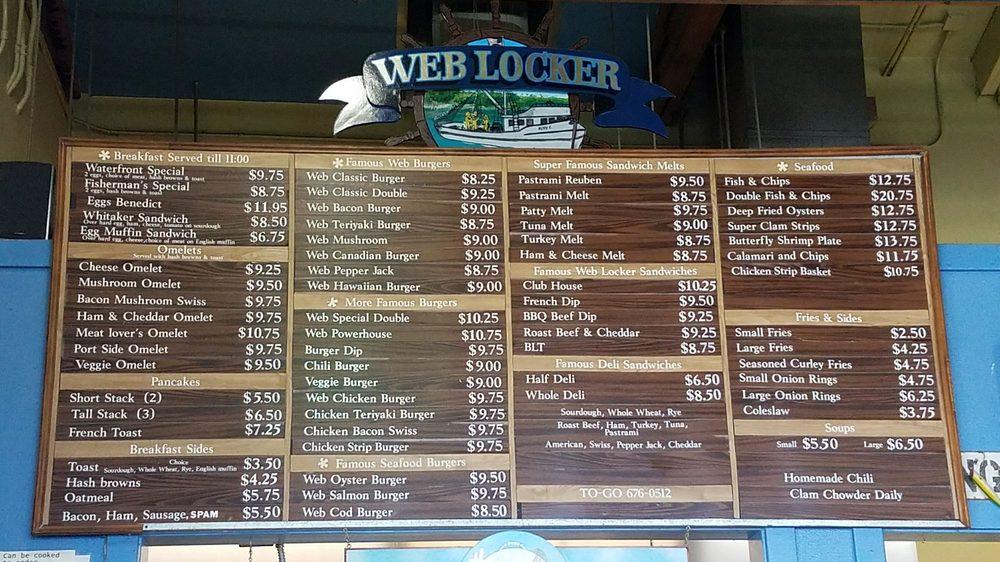 WEB LOCKER
Breakfast Served till 11:00
Waterfront Special $9.75
2 eggs, choice of meat, hash browns & toast
Fisherman's Special $8.75
2 eggs, hash browns & toast
Eggs Benedict $11.95
Whitaker Sandwich $8.50
Over hard egg, ham, cheese, tomato on sourdough
Egg Muffin Sandwich $6.75
Over hard egg, cheese, choice of meat on English muffin
Omelets
Served with hash browns & toast
Cheese Omelet $9.25
Mushroom Omelet $9.50
Bacon Mushroom Swiss $9.75
Ham & Cheddar Omelet $9.75
Meat lover's Omelet $10.75
Port Side Omelet $9.75
Veggie Omelet $9.50
Pancakes
Short Stack (2) $5.50
Tall Stack (3) $6.50
French Toast $7.25
Breakfast Sides
Toast Choice $3.50
Sourdough, Whole Wheat, Rye, English muffin
Hash browns $4.25
Oatmeal $5.75
Bacon, Ham, Sausage, SPAM $5.50
Famous Web Burgers
Web Classic Burger $8.25
Web Classic Double $9.25
Web Bacon Burger $9.00
Web Teriyaki Burger $8.75
Web Mushroom $9.00
Web Canadian Burger $9.00
Web Pepper Jack $8.75
Web Hawaiian Burger $9.00
More Famous Burgers
Web Special Double $10.25
Web Powerhouse $10.75
Burger Dip $9.75
Chili Burger $9.00
Veggie Burger $9.00
Web Chicken Burger $9.75
Chicken Teriyaki Burger $9.75
Chicken Bacon Swiss $9.75
Chicken Strip Burger $9.75
Famous Seafood Burgers
Web Oyster Burger $9.50
Web Salmon Burger $9.75
Web Cod Burger $8.50
Super Famous Sandwich Melts
Pastrami Reuben $9.50
Pastrami Melt $8.75
Patty Melt $9.75
Tuna Melt $9.00
Turkey Melt $8.75
Ham & Cheese Melt $8.75
Famous Web Locker Sandwiches
Club House $10.25
French Dip $9.50
BBQ Beef Dip $9.25
Roast Beef & Cheddar $9.25
BLT $8.75
Famous Deli Sandwiches
Half Deli $6.50
Whole Deli $8.50
Sourdough, Whole Wheat, Rye
Roast Beef, Ham, Turkey, Tuna,
Pastrami
American, Swiss, Pepper Jack, Cheddar
TO-GO 676-0512
Seafood
Fish & Chips $12.75
Double Fish & Chips $20.75
Deep Fried Oysters $12.75
Super Clam Strips $12.75
Butterfly Shrimp Plate $13.75
Calamari and Chips $11.75
Chicken Strip Basket $10.75
Fries & Sides
Small Fries $2.50
Large Fries $4.25
Seasoned Curley Fries $4.75
Small Onion Rings $4.75
Large Onion Rings $6.25
Coleslaw $3.75
Soups
Small $5.50 Large $6.50
Homemade Chili
Clam Chowder Daily
Can be cooked